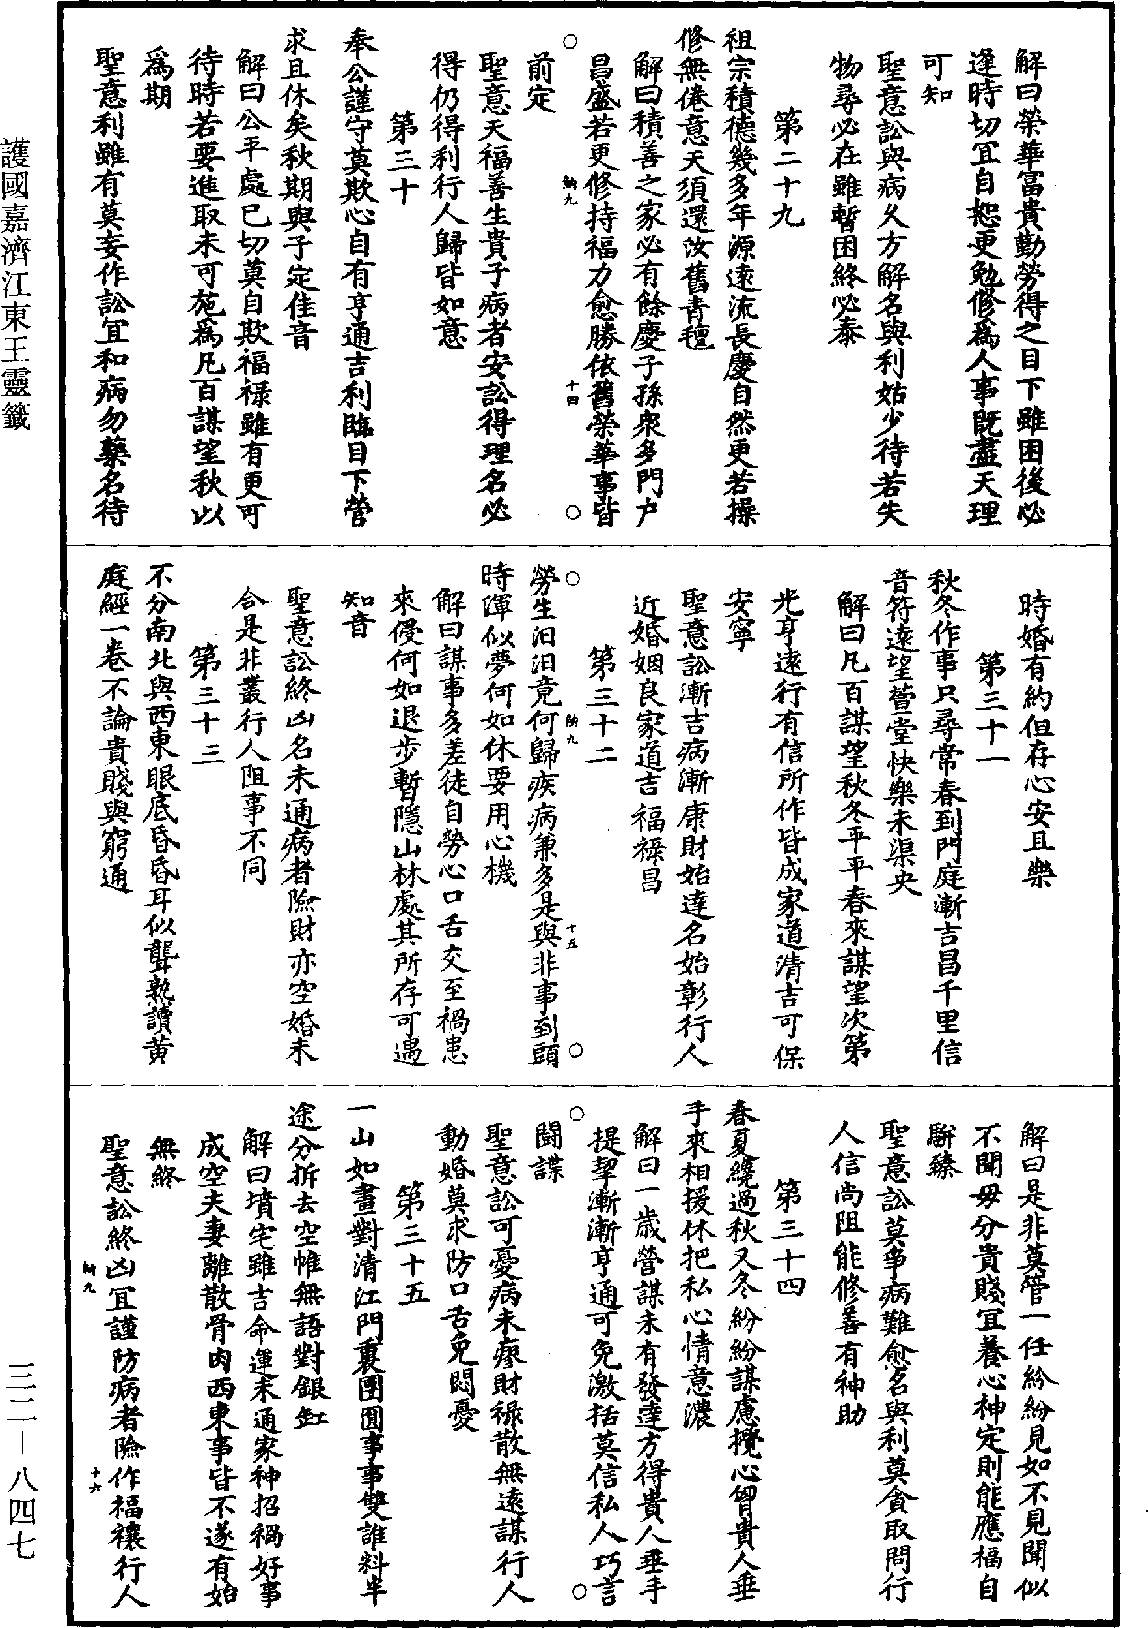 解曰榮華富貴勤勞得之目下雖困後必
逢時切宜自恕更勉修爲人事既盡天理
可知
聖意訟與病久方解名與利姑少待若失
物尋必在雖暫困終必泰
第二十九
祖宗積德幾多年源遠流長慶自然更若操
修無倦意天須還汝舊青氊
解曰積善之家必有餘慶子孫衆多門户
昌盛若更修持福力愈勝依舊榮華事皆
前定
聖意天福善生貴子病者安訟得理名必
得仍得利行人歸皆如意
第三十
奉公謹守莫欺心自有亨通吉利臨目下營
求且休矣秋期與子定佳音
解曰公平處已切莫自欺福禄雖有更可
待時若要進取未可施爲凡百謀望秋以
爲期
聖意利雖有莫妄作訟宜和病勿藥名待
時婚有約但存心安且樂
第三十一
秋冬作事只尋常春到門庭漸吉昌千里信
音符遠望萱堂快樂未渠央
解曰凡百謀望秋冬平平春來謀望次第
光亨遠行有信所作皆成家道清吉可保
安寧
聖意訟漸吉病漸康財始達名始彰行人
近婚姻良家道吉福祿昌
第三十二
勞生汩汩竟何歸疾病兼多是與非事到頭
時渾似夢何如休要用心機
解曰謀事多差徒自勞心口舌交至禍患
來侵何如退步暫隱山林處其所存可遇
知音
聖意訟終凶名未通病者險財亦空婚未
合是非叢行人阻事不同
第三十三
不分南北與西東眼底昏昏耳似聾熟讀黃
庭經一卷不論貴賤與窮通
解曰是非莫管一任紛紛見如不見聞似
不聞毋分貴賤宜養心神定則能應福自
駢臻
聖意訟莫事病難愈名與利莫貪取問行
人信尚阻能修善有神助
第三十四
春夏纔過秋又冬紛紛謀慮攪心胷貴人垂
手來相援休把私心情意濃
解曰一歲營謀未有發達方得貴人垂手
提挈漸漸亨通可免激括莫信私人巧言
鬪諜
聖意訟可憂病未瘳財禄散無遠謀行人
動婚莫求防口舌免悶憂
第三十五
一山如畫對清江門裏團圓事事雙誰料半
途分拆去空帷無語對銀缸
解曰墳宅雖吉命運未通家神招禍好事
成空夫妻離散骨肉西東事皆不遂有始
無終
聖意訟終凶宜謹防病者險作福禳行人
納九
十四
納九
十五
納九
十六
護國嘉濟江東王靈籤
三二—八四七